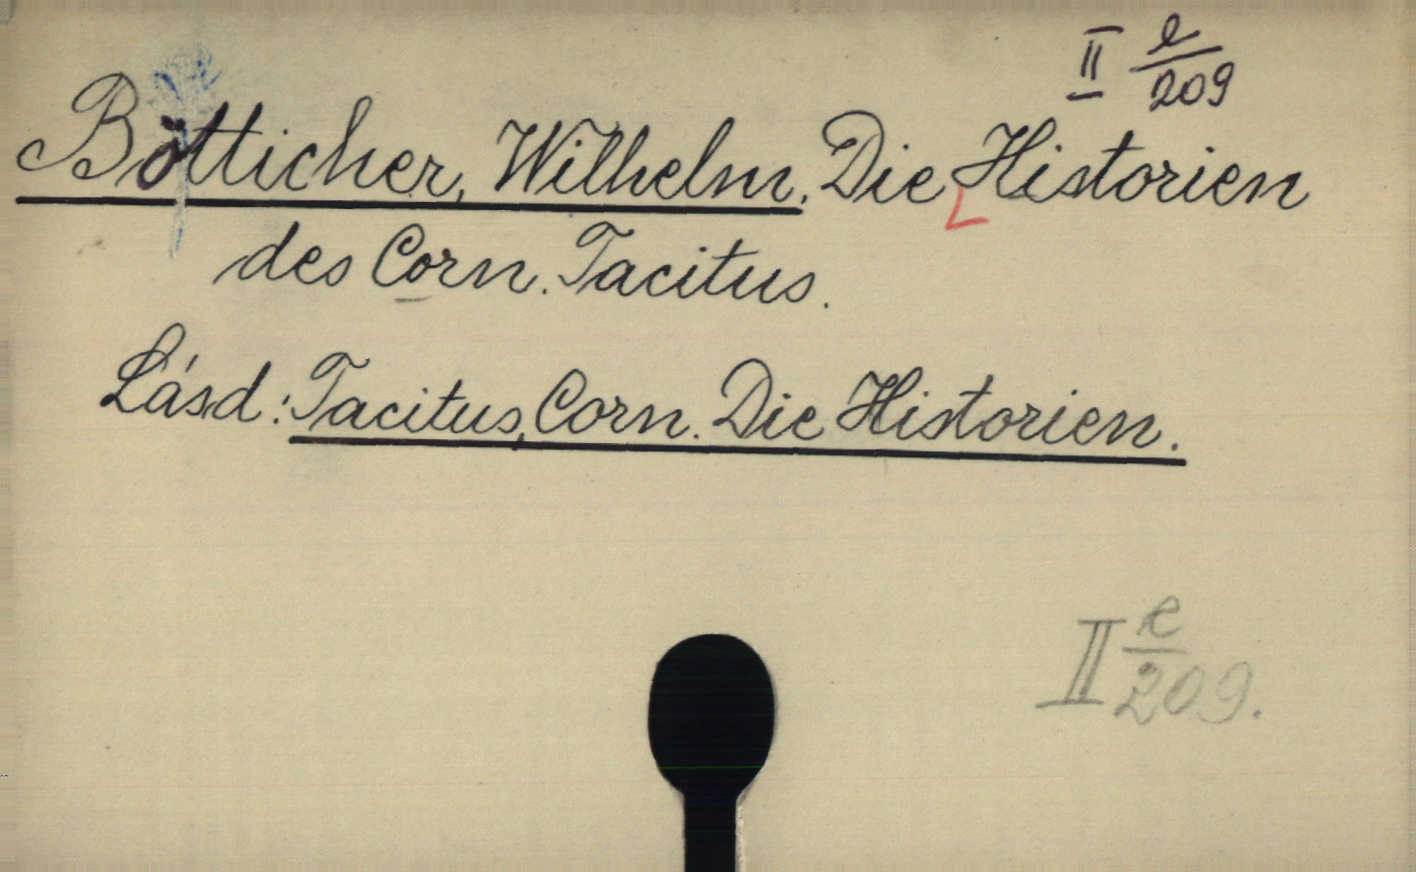 II e/209
Bötticher, Wilhelm. Die Historien
des Corn. Tacitus.
Lásd: Tacitus, Corn. Die Historien.
II e/209.